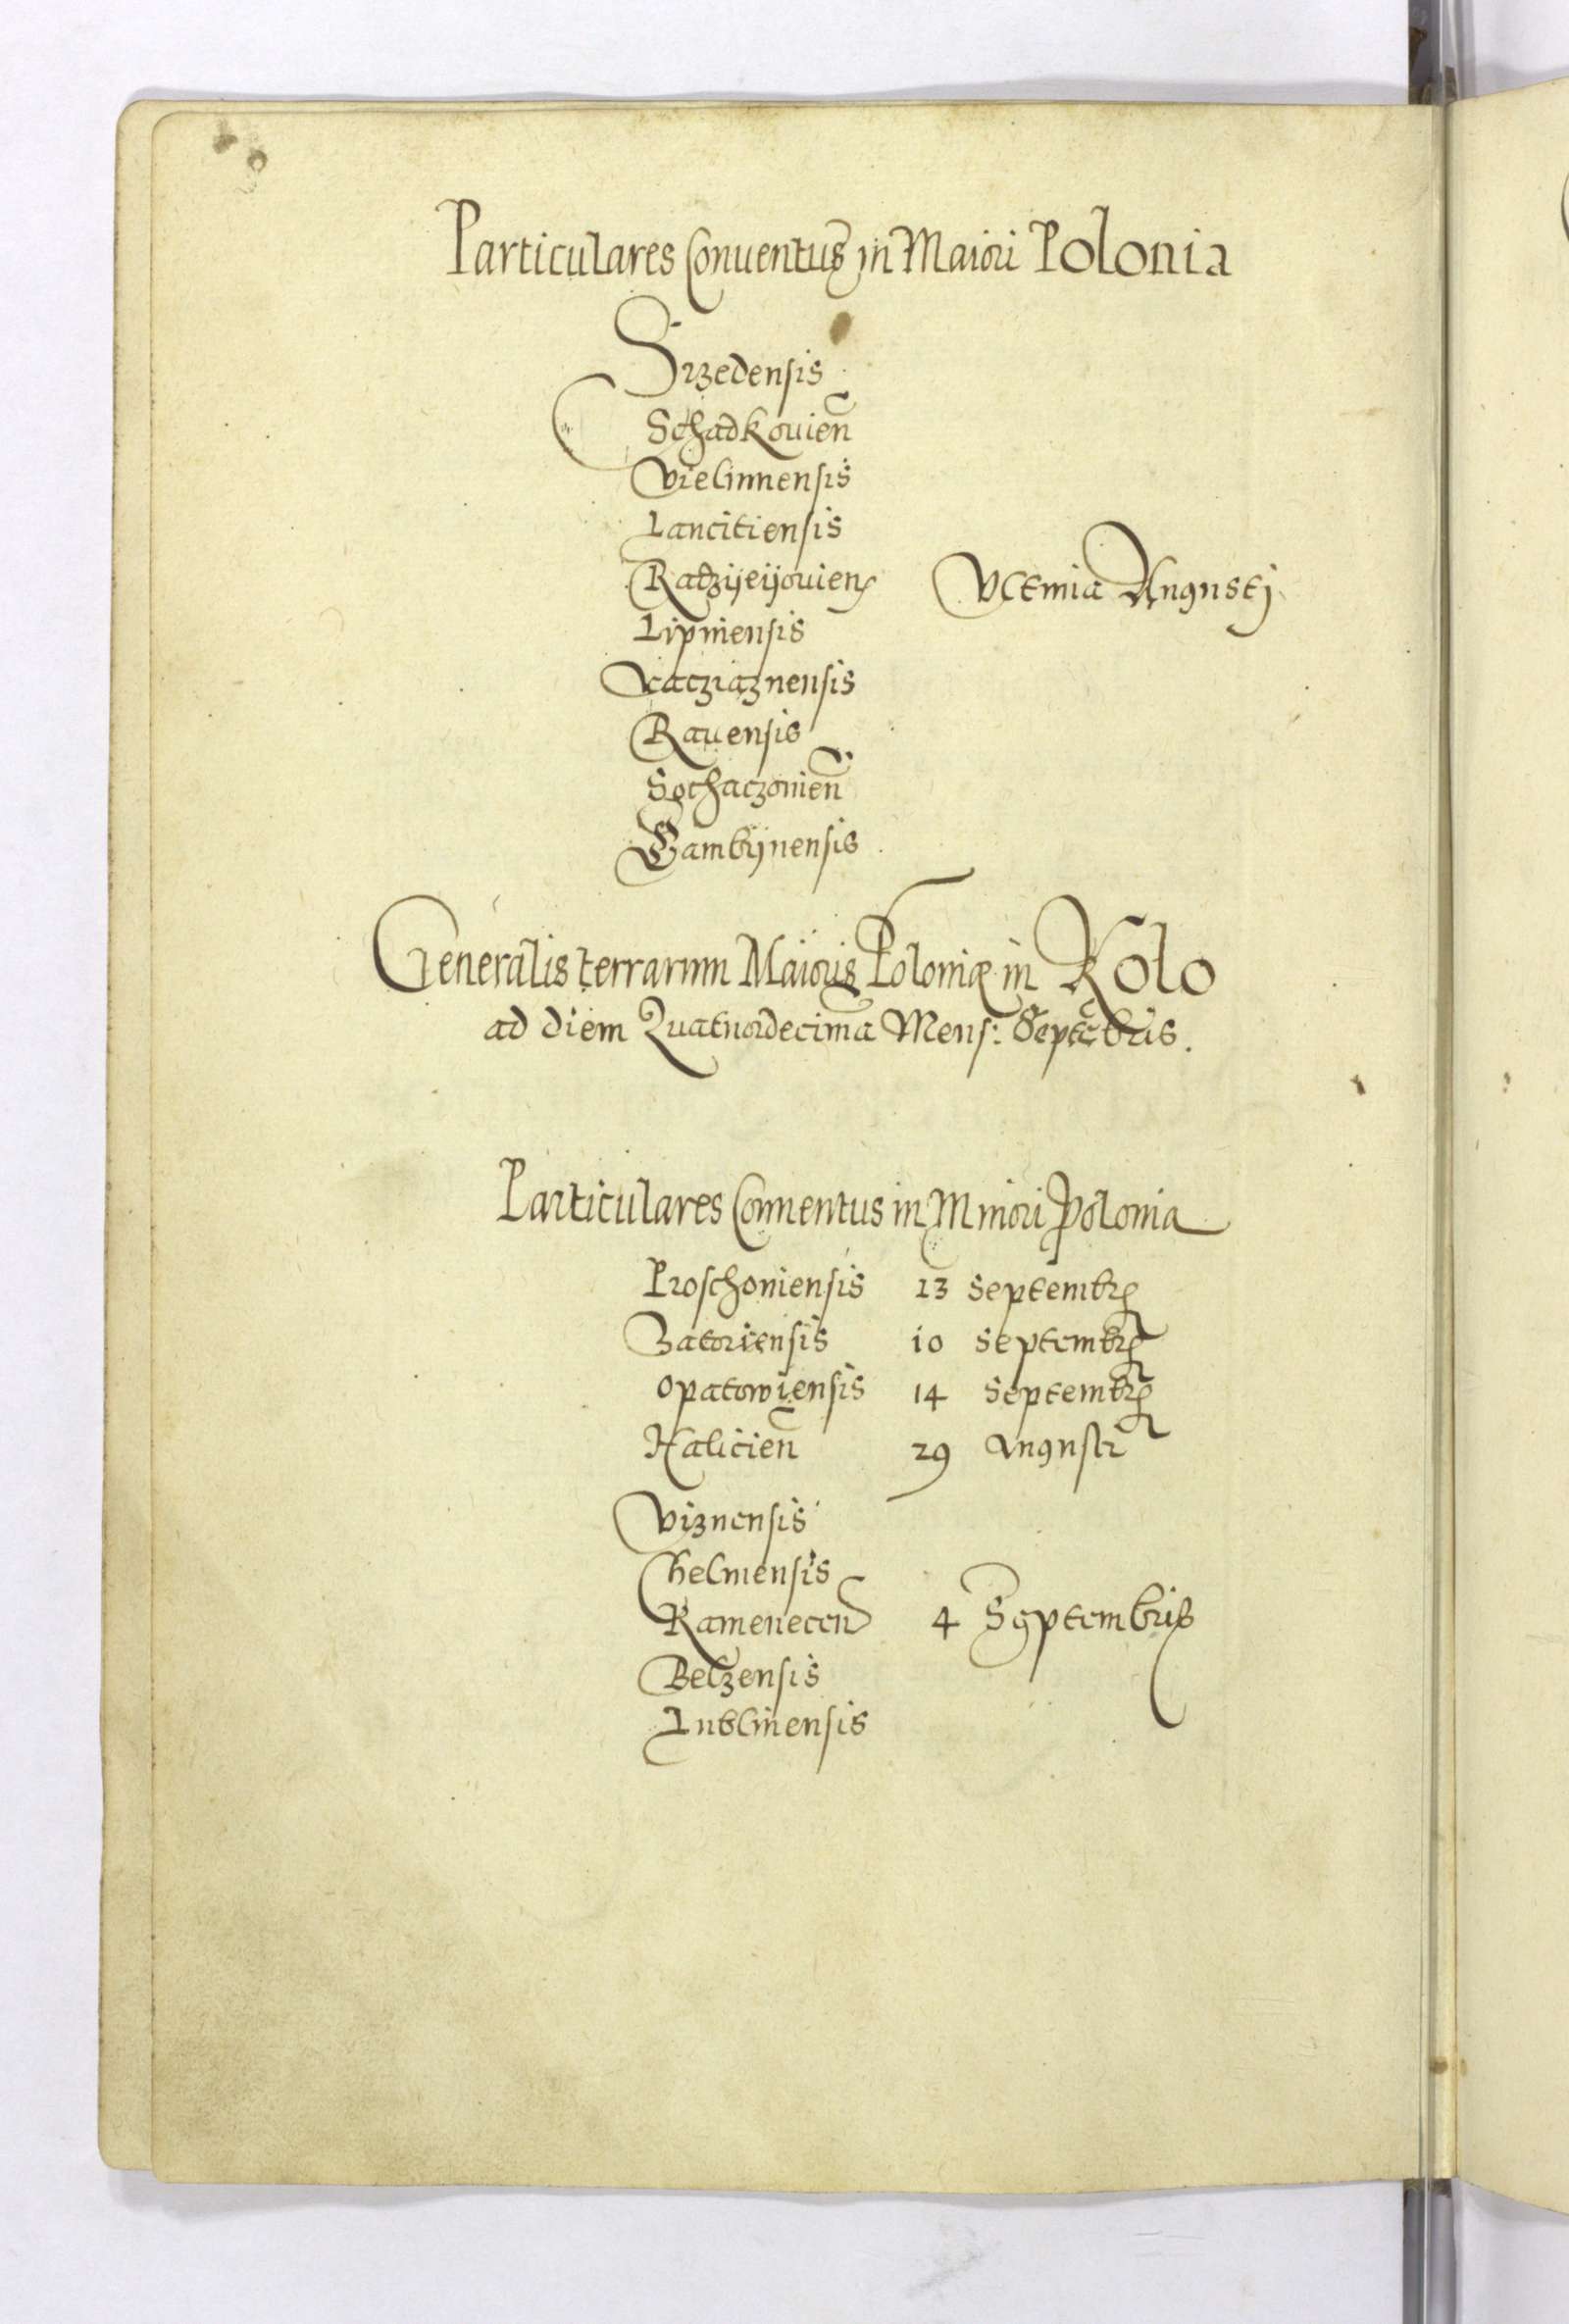 Particulares Conuentus in Maiori Polonia
Srzedensis
Schadkouien̄
Vielunnensis
Lancitiensis
Radzijeijouiens Vltima Augustj
Lipnensis
Racziaznensis
Rauensis
Sochaczouien̄
Gambijnensis
Generalis terrarum Maioris Poloniæ in Kolo
ad diem Quatuordecima Mens: Septēbris.
Particulares Conuentus in Minori Polonia
Proschouiensis 13 Septembr
Zatoriensis 10 Septembr
Opatowiensis 14 Septembr
Halicien̄ 29 Augusti
Viznensis
Chelmensis
Kamenecen 4 Septembris
Belzensis
Lublinensis